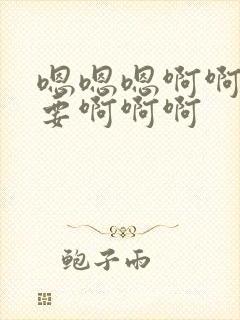 嗯嗯嗯啊啊
要啊啊啊
鲍子雨